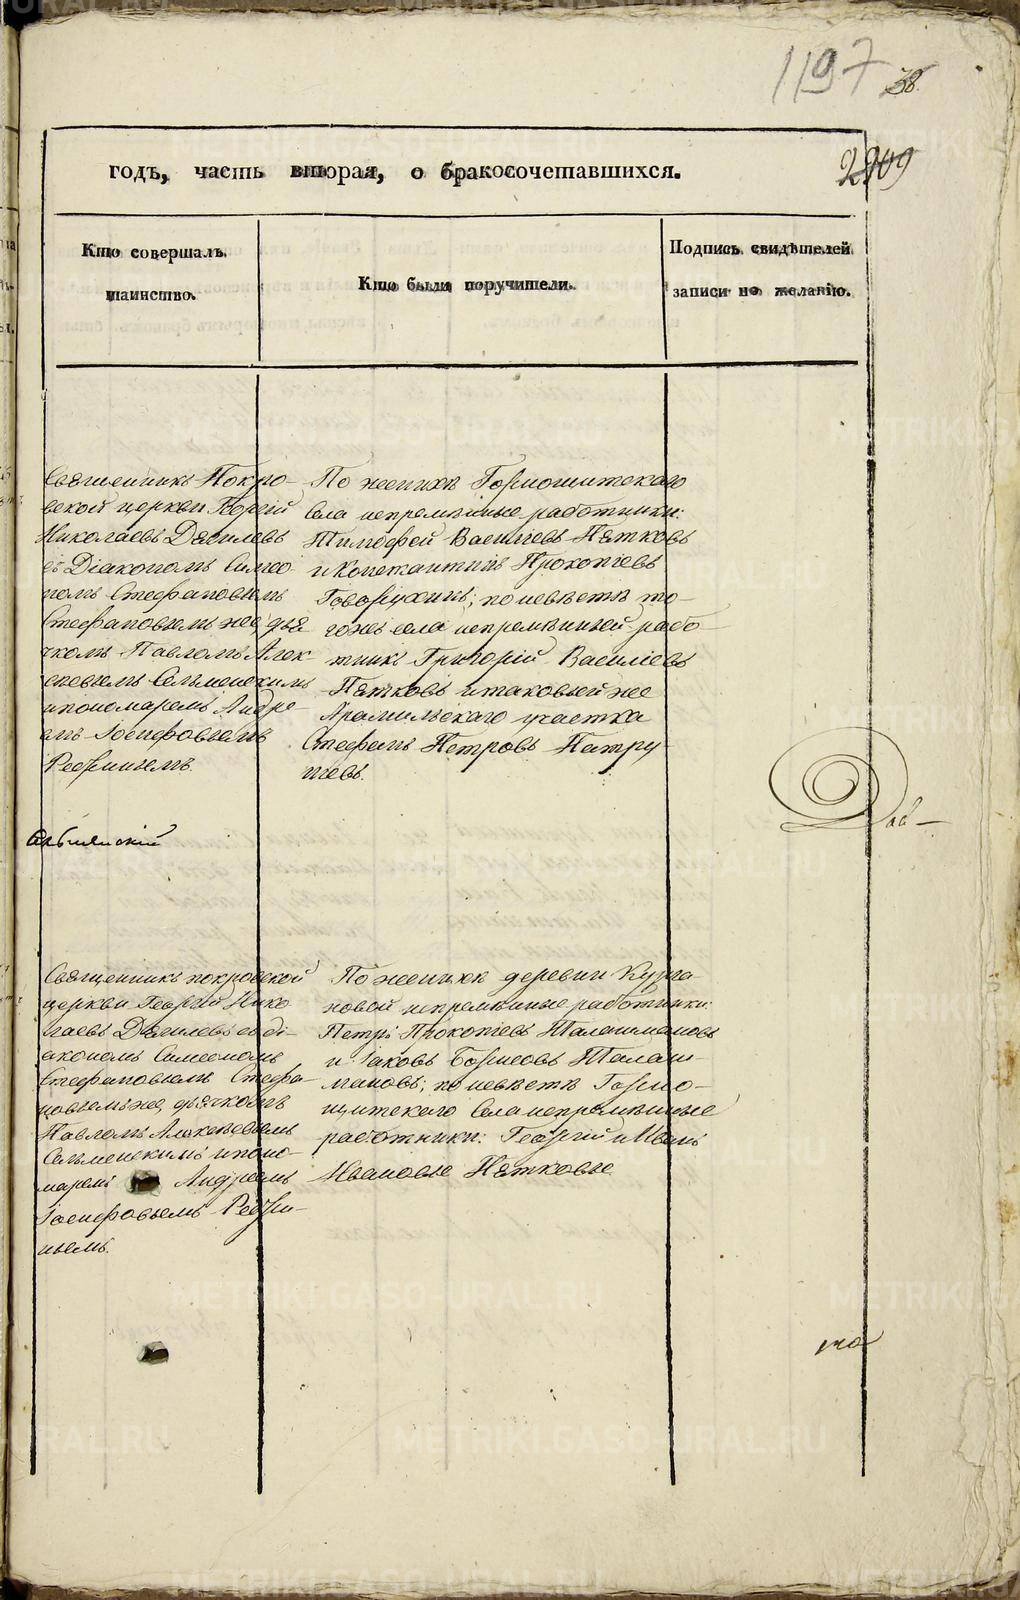 1197
38.
2909
годъ, часть вторая, о бракосочетавшихся.
Кто совершалъ
таинство.
Кто были поручители.
Подпись свидѣтелей
записи по желанію.
Священникъ Покро-
вской церкви Георгій
Николаевъ
съ Діакономъ Симео
номъ Стефановымъ
Стефановымъ же, дья
чкомъ Павломъ Алек
сѣевымъ Сельменскимъ
и пономаремъ Андре
емъ Іосифовымъ
По женихѣ Горнощитскаго
села непремѣнные работники:
Тимофей Васильевъ Пятковъ
и Константинъ Прокопіевъ
Говорухинъ; по невѣстѣ то-
гожъ села непремѣнный рабо
тникъ Григорій Василіевъ
Пятковъ и таковый же
Арамильскаго участка
Стефанъ Петровъ Патру
шевъ.
Священникъ покровской
церкви Георгій Нико
лаевъ съ ді-
акономъ Симеономъ
Стефановымъ Стефа-
новымъ же, дьячкомъ
Павломъ Алексѣевымъ
Сельменскимъ и поно-
маремъ Андреемъ
Іосифовымъ
По женихѣ деревни Курга
новой непремѣнные работники:
Петръ Прокопіевъ Талашмановъ
и Іаковъ Борисовъ Талаш-
мановъ; по невѣстѣ Горно-
щитскаго села непремѣнные
работники: Георгій и Иванъ
Ивановы Пятковы
METRIKI.GASO-URAL.RU